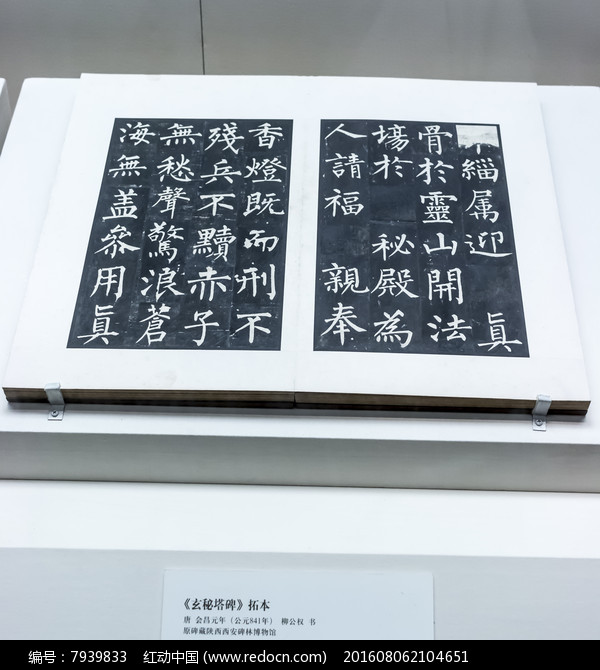 緇属迎 眞
骨於靈山開法
場於 秘殿為
人請福 親奉
香燈既而刑不
殘兵不黷赤子
無愁聲驚浪蒼
海無盖叅用眞
《玄秘塔碑》拓本
唐 会昌元年（公元841年） 柳公权 书
原碑藏陕西西安碑林博物馆
编号：7939833 红动中国（www.redocn.com） 201608062104651